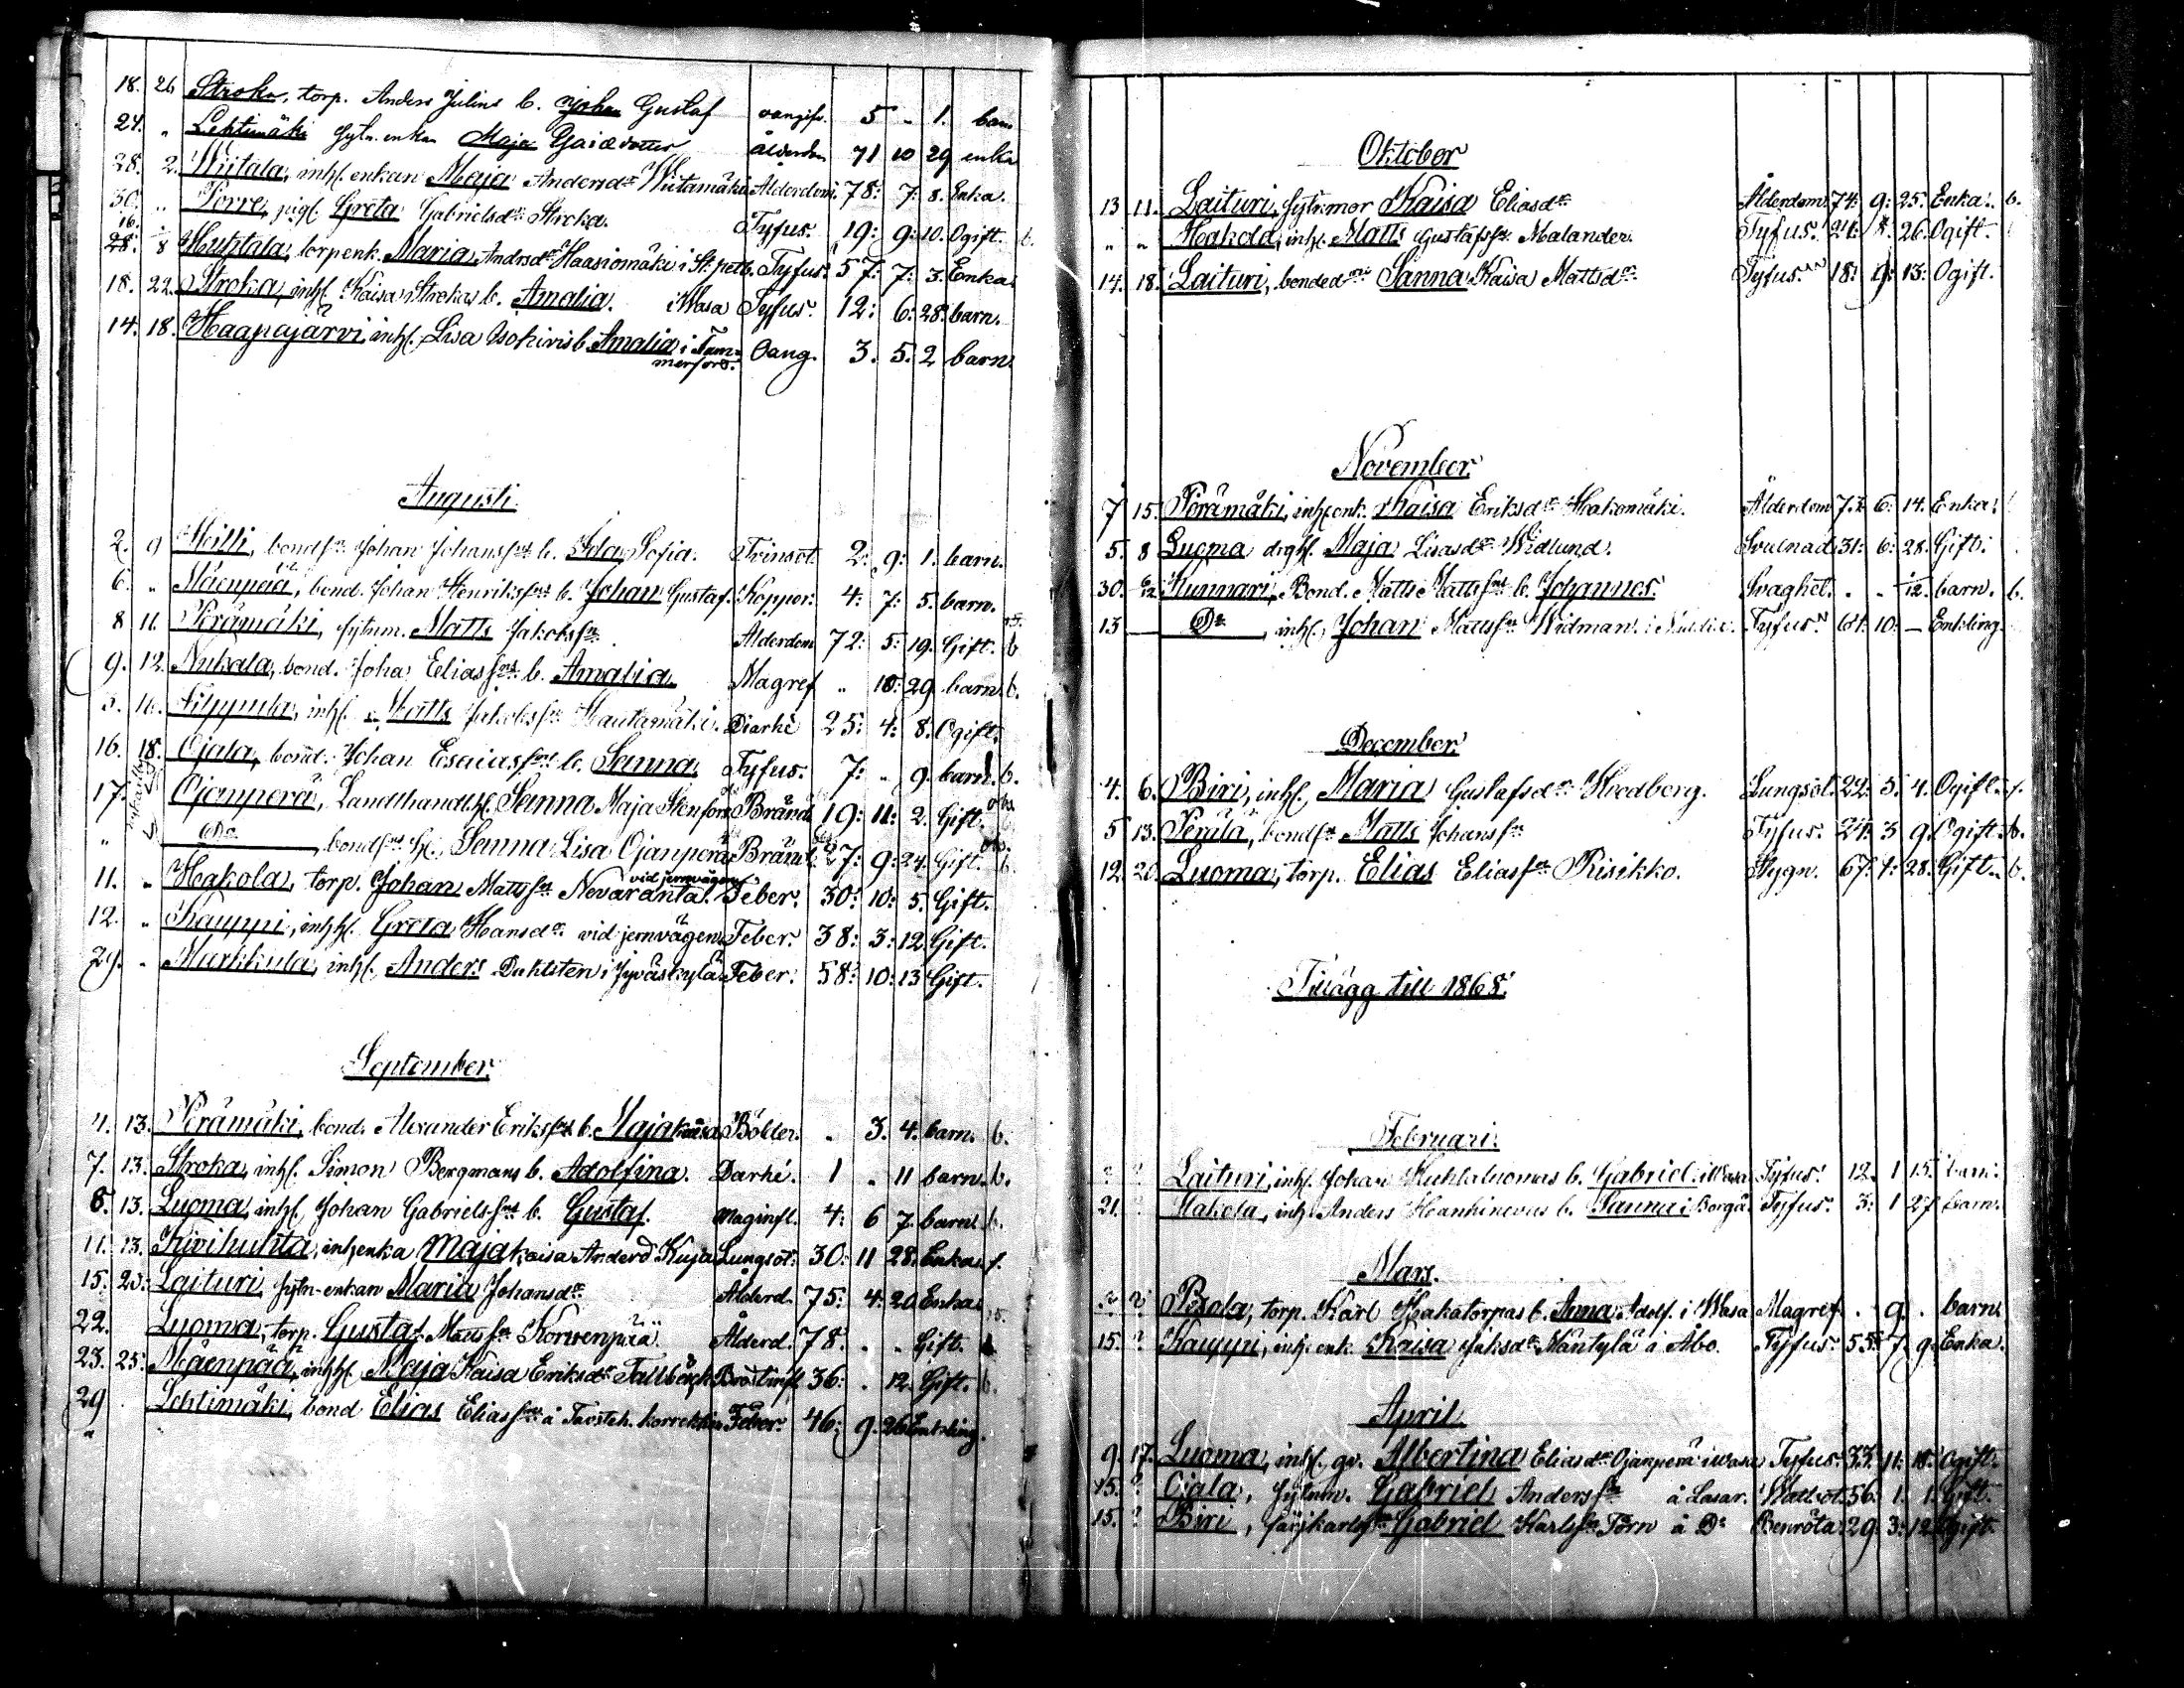 18. 26 Stroka, torp. Anders Julius b. Johan Gustaf oangifv. 5 „ 1. barn
24. „ Lehtimäki sytn. enkan Maja Esaiædotter ålderdom 71 10 29 enka
28. 2. Wiitala, inhs. enkan Maja Andersdr Wiitamäki Ålderdom. 78: 7: 8. Enka.
30. „ Porre, pigs. Greta Gabrielsdr Stroka. Tyfus. 19: 9: 10. Ogift. b.
16. 28. 8 Huhtala, torpenk. Maria Andrsdr Haasiomäki i St. petb. Tyfus. 57: 7: 3. Enka.
18. 22. Stroka, inhs. Kaisa Strokas b. Amalia. i Wasa Tyfus. 12: 6: 28: barn.
14. 18. Haapajärvi, inhs. Lisa Isokivis b. Amalia i Tam-
merfors. Oang. 3. 5. 2 barn.
Augusti.
2. 9 Hilli, bondsn Johan Johanssns b. Ida Sofia. Trinsot. 2: 9: 1. barn.
6. „ Mäenpää, bond. Johan Henrikssns b. Johan Gustaf. Koppor. 4: 7: 5. barn.
8 11. Perämäki, sytnm. Matts Jakobssn. Ålderdom 72: 5: 19. Gift. b
9. 12. Nukala, bond. Joha Eliassns b. Amalia Magref „ 10: 29 barn. b.
5. 16. Filppula, inhs. Matts Jakobssn Hautamäki. Diarhé 25: 4: 8. Ogift.
16. 18. Ojala, bond. Johan Esaiassns b. Sanna Tyfus. 7: „ 9. barn. b.
17. Ojanperä, Landthandl. hs. Sanna Maja Stenfors Bränd 19: 11: 2. Gift.
„ Do, bondsns hs. Sanna Lisa Ojanperä Bränd 27: 9: 24. Gift. b.
11. „ Hakola, torp. Johan Mattssn Nevaranta. vid jernvägen. Feber. 30: 10: 5. Gift.
12. „ Kauppi, inhhs. Greta Hansdr vid jernvägen Feber. 38: 3: 12 Gift.
29. „ Markkula, inhs. Anders Dahlsten i Jyväskylä Feber. 58: 10: 13 Gift.
September.
4. 13. Perämäki, bond. Alexander Erikssns b. Maja Kaisa Bölder. „ 3. 4. barn. b.
7. 13. Stroka, inhs. Simon Bergmans b. Adolfina. Darhé. 1 „ 11 barn. b.
8. 13. Luoma, inhs. Johan Gabrielssns b. Gustaf. Maginfl. 4: 6 7. barn. b.
11. 13. Kivihuhta, inhenka Maja Kaisa Andersd Kuja Lungsot: 30: 11 28. Enka. f.
15. 20. Laituri, sytn-enkan Maria Johansdr Ålderd. 75: 4: 20 Enka.
22. Luoma, torp. Gustaf Mattssn Korvenpää Ålderd. 78. „ „ Gift.
23. 25: Mäenpää, inhhs. Maja Kaisa Eriksdr Tallbäck Bröstinfl. 36: . 12. Gift. b.
29 Lehtimäki, bond Elias Eliassn å Tavsteh. korrektion Feber. 46: 9. 26 Enkling.
Oktober
13 11. Laituri, sytn.mor Kaisa Eliasdr Ålderdom. 74: 9: 25: Enka. b.
„ „ Hakola, inhs. Matts Gustafssn Malander. Tyfus. 21. 8. 26. Ogift.
14. 18. Laituri, bondedr Sanna Kaisa Mattsdr Tyfus. 18: 9: 13: Ogift.
November.
7 15. Perämäki, inhs enk. Kaisa Eriksdr Hakomäki. Ålderdom 72. 6: 14. Enka.
5. 8 Luoma drghs. Maja Lisasdr Widlund. Svulnad 31: 6: 28. Gift.
30. 6/12 Kunnari, Bond. Matts Mattssns b. Johannes. Svaghet. „ „ 1/2. barn. b.
13 — Do, inhs., Johan Mattssn Widman. Tyfus. 61: 10: — Enkling.
December.
4. 6. Biri, inhs., Maria Gustafsdr Hredberg. Lungsot. 22: 5. 4. Ogift. f.
5 13. Perälä, bondsn Matts Johanssn Tyfus. 24. 3 9. Ogift. b.
12. 20. Luoma, torp. Elias Eliassn Risikko. Stygn. 67: 1: 28. Gift. b.
Tillägg till 1868.
Februari.
? ? Laituri, inhs. Johan Huhtaluomas b. Gabriel i Wasa Tyfus. 12. 1 15. barn.
21. ? Hakola, inhs Anders Hankinevas b. Sanna i Borgå. Tyfus. 3. 1 27 barn.
Mars.
? ? Pesola, torp. Karl Hakatorpas b. Anna Adolf. i Wasa Magref. . 9. . barn.
15. ? Kauppi, inhs. enk. Kaisa Jaksdr Mäntylä i Åbo. Tyfus. 55. 7. 9. Enka.
April.
9. 17. Luoma, inhs. qv. Albertina Eliasdr Ojanperä i Wasa Tyfus. 33. 11. 18. Ogift.
15. ? Ojala, sytnm. Gabriel Anderssn å Lasar. Wattsot. 56. 1. 1. Gift.
15. ? Biri, Gabriel Karlssn Törn å Do Benröta. 29 3. 12. Gift.